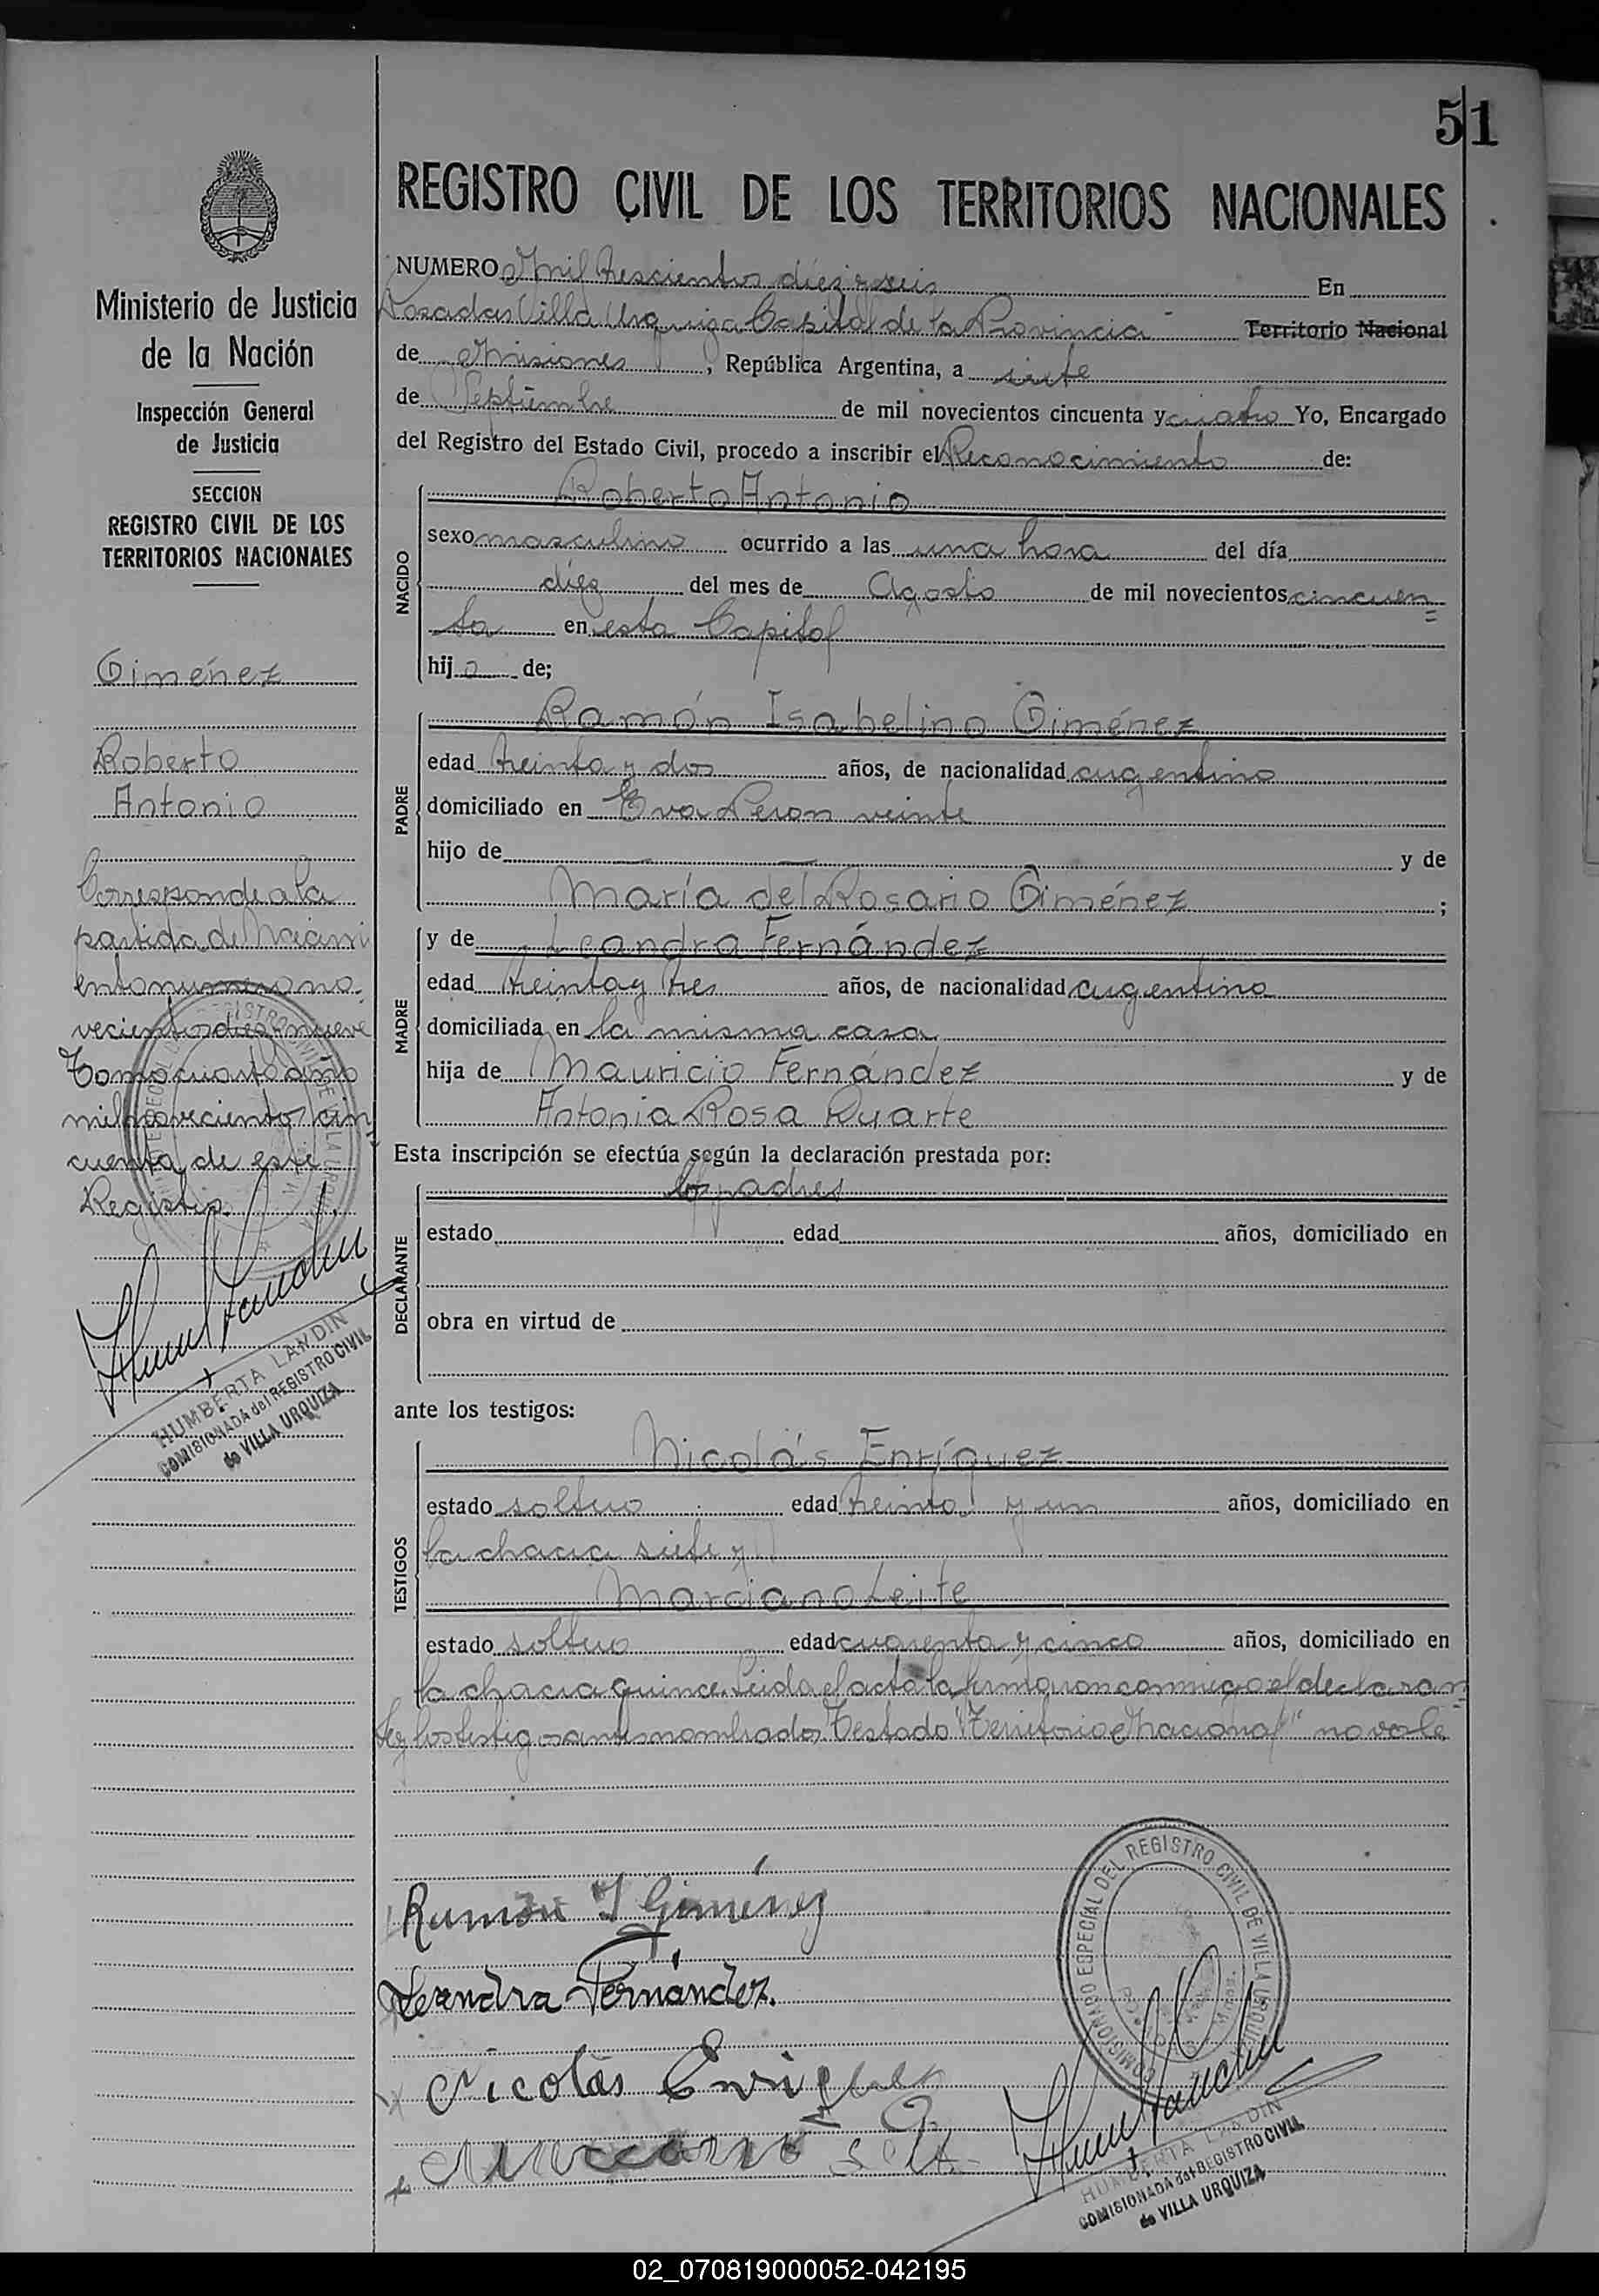 51
REGISTRO CIVIL DE LOS TERRITORIOS NACIONALES
Ministerio de Justicia
de la Nación
Inspección General
de Justicia
SECCION
REGISTRO CIVIL DE LOS
TERRITORIOS NACIONALES
Giménez
Roberto
Antonio
Corresponde a la
partida de Nacimi
ento numero no
vecientos diez y nueve
Tomo cuarto año
mil novecientos cin
cuenta de este
Registro.
HUMBERTA LANDIN
COMISIONADA del REGISTRO CIVIL
de VILLA URQUIZA
NUMERO Mil trescientos diez y seis En
Posadas Villa Urquiza Capital de la Provincia Territorio Nacional
de Misiones, República Argentina, a siete
de Septiembre de mil novecientos cincuenta y cuatro Yo, Encargado
del Registro del Estado Civil, procedo a inscribir el Reconocimiento de:
NACIDO
Roberto Antonio
sexo masculino ocurrido a las una hora del día
diez del mes de Agosto de mil novecientos cincuen=
ta en esta Capital
hijo de;
PADRE
Ramón Isabelino Giménez
edad treinta y dos años, de nacionalidad argentino
domiciliado en Eva Peron veinte
hijo de — — y de
María del Rosario Giménez;
MADRE
y de Leandra Fernández
edad treinta y tres años, de nacionalidad argentina
domiciliada en la misma casa
hija de Mauricio Fernández y de
Antonia Rosa Duarte
Esta inscripción se efectúa según la declaración prestada por:
DECLARANTE
los padres
estado edad años, domiciliado en
obra en virtud de
ante los testigos:
TESTIGOS
Nicolás Enríquez
estado soltero edad treinta y un años, domiciliado en
la chacra siete y
Marciano Leite
estado soltero edad cuarenta y cinco años, domiciliado en
la chacra quince. Leida el acta la firmaron conmigo el declaran
te y los testigos antes nombrados. Testado "Territorio Nacional" no vale
Ramón I Giménez
Leandra Fernández.
Nicolás Enriquez
COMISIONADO ESPECIAL DEL REGISTRO CIVIL DE VILLA URQUIZA
HUMBERTA LANDIN
COMISIONADA del REGISTRO CIVIL
de VILLA URQUIZA
02_070819000052-042195